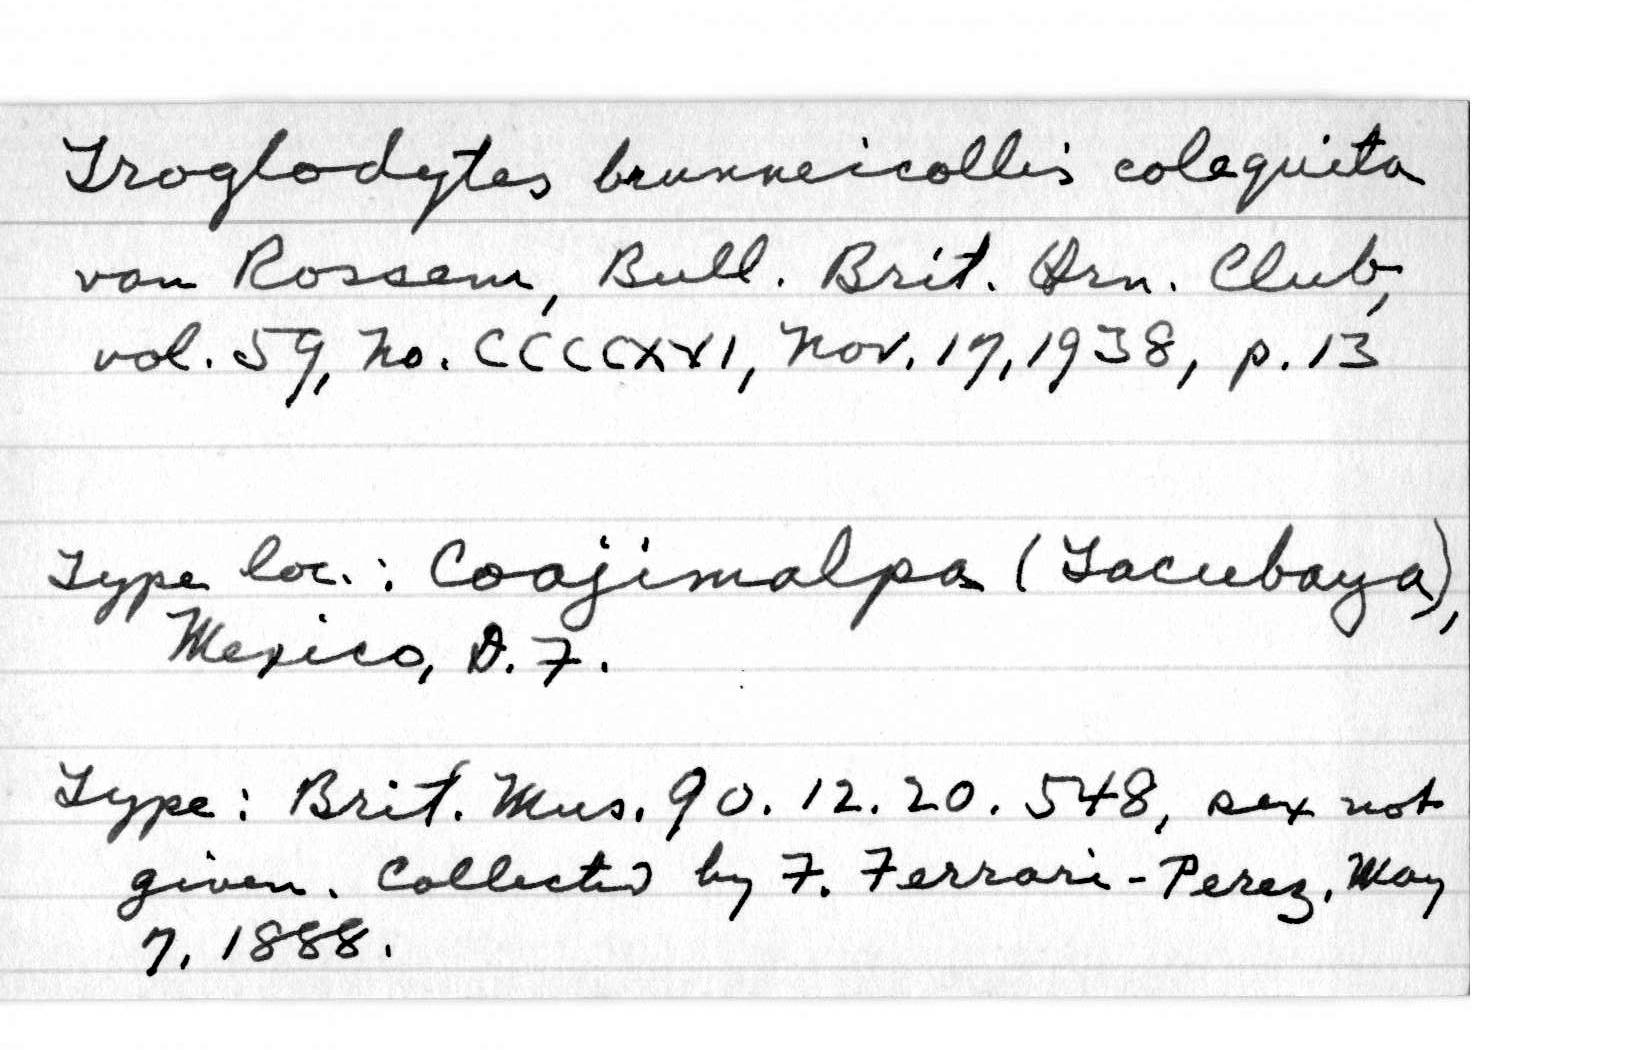 Troglodytes brunneicollis colequita
van Rossem, Bull. Brit. Orn. Club,
vol. 59, No. CCCCXXI, Nov. 17, 1938, p. 13
Type loc.: Coajimalpa (Tacubaya),
Mexico, D. F.
Type: Brit. Mus. 90.12.20.548, sex not
given. Collected by F. Ferrari-Perez, May
7, 1888.